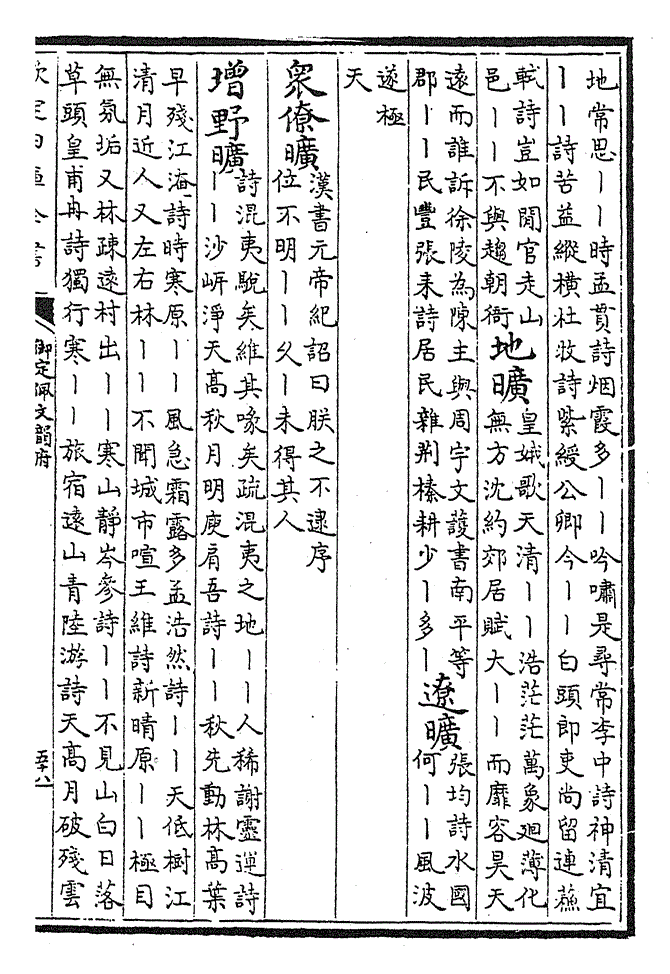 地常思丨丨時孟貫詩烟霞多丨丨吟嘯是尋常李中詩神清宜
丨丨詩苦益縱横杜牧詩紫綬公卿今丨丨白頭郎吏尚留連蘇
軾詩豈如閒官走山
邑丨丨不與趨朝衙
地曠
皇娥歌天清丨丨浩茫茫萬象廻薄化
無方沈約郊居賦大丨丨而靡容昊天
遠而誰訴徐陵為陳主與周宇文護書南平等
郡丨丨民豐張耒詩居民雜荆榛耕少丨多丨
遼曠
張均詩水國
何丨丨風波
遂極
天
衆僚曠
漢書元帝紀詔曰朕之不逮序
位不明丨丨久丨未得其人
增
野曠
詩混夷駾矣維其喙矣疏混夷之地丨丨人稀謝靈運詩
丨丨沙岍淨天高秋月明庾肩吾詩丨丨秋先動林高葉
早殘江淹詩時寒原丨丨風急霜露多孟浩然詩丨丨天低樹江
清月近人又左右林丨丨不聞城市喧王維詩新晴原丨丨極目
無氛垢又林疎遠村出丨丨寒山靜岑參詩丨丨不見山白日落
草頭皇甫冉詩獨行寒丨丨旅宿遠山青陸游詩天高月破殘雲
欽定四庫全書
御定佩文韻府